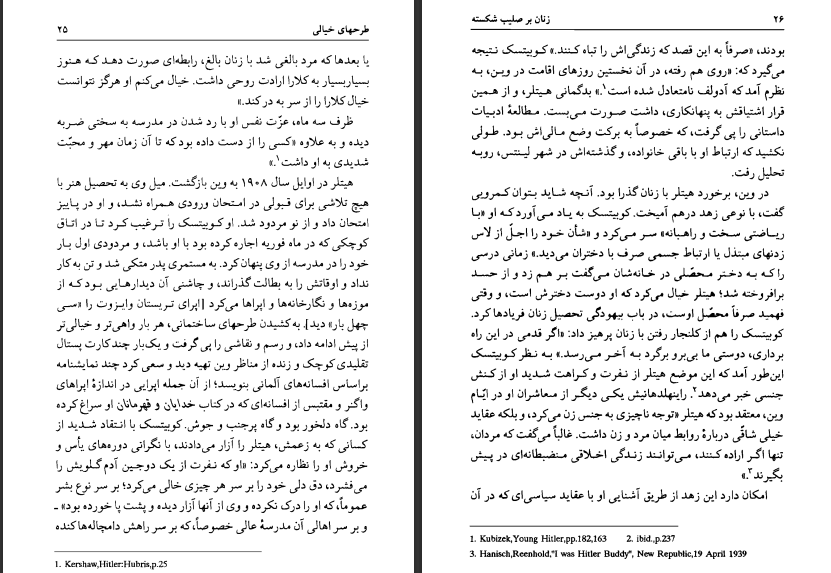 طرحهای خیالی ۲۵
یا بعدها که مرد بالغی شد با زنان بالغ، رابطه‌ای صورت دهد که هنوز
بسیاربسیار به کلارا ارادت روحی داشت. خیال می‌کنم او هرگز نتوانست
خیال کلارا را از سر به در کند.»
ظرف سه ماه، عزّت نفس او با رد شدن در مدرسه به سختی ضربه
دیده و به علاوه «کسی را از دست داده بود که تا آن زمان مهر و محبّت
شدیدی به او داشت۱.»
هیتلر در اوایل سال ۱۹۰۸ به وین بازگشت. میل وی به تحصیل هنر با
هیچ تلاشی برای قبولی در امتحان ورودی همراه نشد، و او در پاییز
امتحان داد و از نو مردود شد. او کوبیتسک را ترغیب کرد تا در اتاق
کوچکی که در ماه فوریه اجاره کرده بود با او باشد، و مردودی اول بار
خود را در مدرسه از وی پنهان کرد. به مستمری پدر متکی شد و تن به کار
نداد و اوقاتش را به بطالت گذراند، و چاشنی آن دیدارهایی بود که از
موزه‌ها و نگارخانه‌ها و اپراها می‌کرد [اپرای تریستان وایزوت را «سی
چهل بار» دید]. به کشیدن طرحهای ساختمانی، هر بار واهی‌تر و خیالی‌تر
از پیش ادامه داد، و رسم و نقاشی را پی گرفت و یک‌بار چند کارت پستال
تقلیدی کوچک و زنده از مناظر وین تهیه دید و سعی کرد چند نمایشنامه
براساس افسانه‌های آلمانی بنویسد؛ از آن جمله اپرایی در اندازهٔ اپراهای
واگنر و مقتبس از افسانه‌ای که در کتاب خدایان و قهرمانان او سراغ کرده
بود. گاه دلخور بود و گاه پرجنب و جوش. کوبیتسک با انتقاد شدید از
کسانی که به زعمش، هیتلر را آزار می‌دادند، با نگرانی دوره‌های یأس و
خروش او را نظاره می‌کرد: «او که نفرت از یک دوجین آدم گلویش را
می‌فشرد، دق دلی خود را بر سر هر چیزی خالی می‌کرد؛ بر سر نوع بشر
عموماً، که او را درک نکرده و وی از آنها آزار دیده و پشت پا خورده بود» ـ
و بر سر اهالی آن مدرسهٔ عالی خصوصاً، که بر سر راهش دامچاله‌ها کنده
1. Kershaw,Hitler:Hubris,p.25
۲۶ زنان بر صلیب شکسته
بودند، «صرفاً به این قصد که زندگی‌اش را تباه کنند.» کوبیتسک نتیجه
می‌گیرد که: «روی هم رفته، در آن نخستین روزهای اقامت در وین، به
نظرم آمد که آدولف نامتعادل شده است۱.» بدگمانی هیتلر، و از همین
قرار اشتیاقش به پنهانکاری، داشت صورت می‌بست. مطالعهٔ ادبیات
داستانی را پی گرفت، که خصوصاً به برکت وضع مالی‌اش بود. طولی
نکشید که ارتباط او با باقی خانواده، و گذشته‌اش در شهر لینتس، روبه
تحلیل رفت.
در وین، برخورد هیتلر با زنان گذرا بود. آنچه شاید بتوان کمرویی
گفت، با نوعی زهد درهم آمیخت. کوبیتسک به یاد می‌آورد که او «با
ریاضتی سخت و راهبانه» سر می‌کرد و «شأن خود را اجلّ از لاس
زدنهای مبتذل یا ارتباط جسمی صرف با دختران می‌دید.» زمانی درسی
را که به دختر محصّلی در خانه‌شان می‌گفت بر هم زد و از حسد
برافروخته شد؛ هیتلر خیال می‌کرد که او دوست دخترش است، و وقتی
فهمید صرفاً محصّل اوست، در باب بیهودگی تحصیل زنان فریادها کرد.
کوبیتسک را هم از کلنجار رفتن با زنان پرهیز داد: «اگر قدمی در این راه
برداری، دوستی ما بی‌برو برگرد به آخر می‌رسد.» به نظر کوبیتسک
این‌طور آمد که این موضع هیتلر از نفرت و کراهت شدید او از کنش
جنسی خبر می‌دهد۲. راینهلدهانیش یکی دیگر از معاشران او در ایّام
وین، معتقد بود که هیتلر «توجه ناچیزی به جنس زن می‌کرد، و بلکه عقاید
خیلی شاقّی دربارهٔ روابط میان مرد و زن داشت. غالباً می‌گفت که مردان،
تنها اگر اراده کنند، می‌توانند زندگی اخلاقی منضبطانه‌ای در پیش
بگیرند۳.»
امکان دارد این زهد از طریق آشنایی او با عقاید سیاسی‌ای که در آن
1. Kubizek,Young Hitler,pp.182,163 2. ibid.,p.237
3. Hanisch,Reenhold,"I was Hitler Buddy", New Republic,19 April 1939